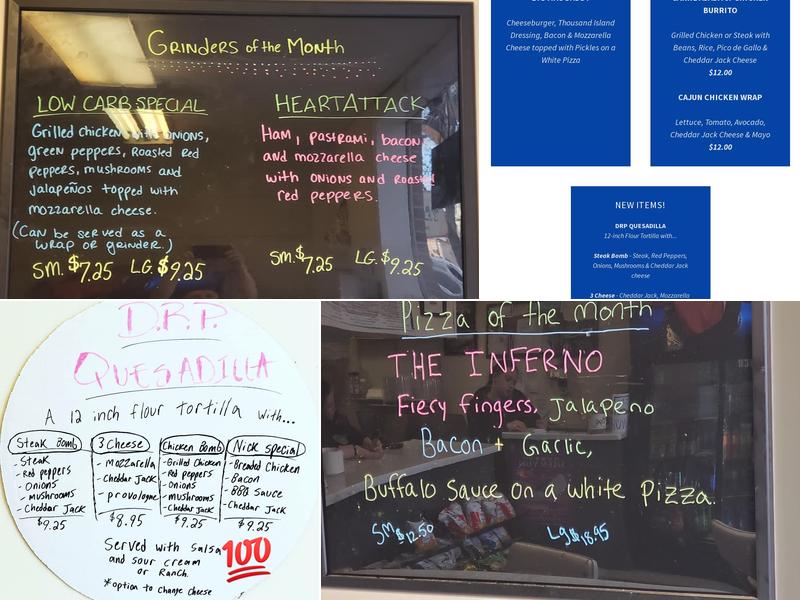 GRINDERS of the MONTH
LOW CARB SPECIAL
Grilled chicken with ONIONS,
green peppers, Roasted Red
peppers, mushrooms and
jalapeños topped with
mozzarella cheese.
(Can be served as a
wrap or grinder.)
SM. $7.25 LG. $9.25
HEARTATTACK
Ham, pastrami, bacon
and mozzarella cheese
with onions and Roasted
red peppers.
SM. $7.25 LG. $9.25
Cheeseburger, Thousand Island
Dressing, Bacon & Mozzarella
Cheese topped with Pickles on a
White Pizza
BURRITO
Grilled Chicken or Steak with
Beans, Rice, Pico de Gallo &
Cheddar Jack Cheese
$12.00
CAJUN CHICKEN WRAP
Lettuce, Tomato, Avocado,
Cheddar Jack Cheese & Mayo
$12.00
NEW ITEMS!
DRP QUESADILLA
12-inch Flour Tortilla with...
Steak Bomb - Steak, Red Peppers,
Onions, Mushrooms & Cheddar Jack
cheese
3 Cheese - Cheddar Jack, Mozzarella
D.R.P.
QUESADILLA
A 12 inch flour tortilla with...
Steak Bomb
- Steak
- Red peppers
- Onions
- mushrooms
- Cheddar Jack
$9.25
3 Cheese
- mozzarella
- Cheddar Jack
- provologne
$8.95
Chicken Bomb
- Grilled Chicken
- Red peppers
- Onions
- mushrooms
- Cheddar Jack
$9.25
Nick special
- Breaded Chicken
- Bacon
- BBQ Sauce
- Cheddar Jack
$9.25
Served with Salsa
and sour cream
or Ranch.
*option to change cheese
100
Pizza of the Month
THE INFERNO
Fiery fingers, Jalapeno
Bacon + Garlic,
Buffalo Sauce on a white Pizza.
SM $12.50 Lg $18.95